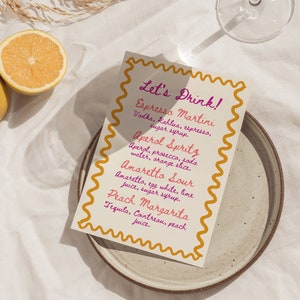 Let's Drink!
Espresso Martini
Vodka, Kahlua, espresso,
sugar syrup.
Aperol Spritz
Aperol, prosecco, soda
water, orange slice.
Amaretto Sour
Amaretto, egg white, lime
juice, sugar syrup.
Peach Margarita
Tequila, Cointreau, peach
juice.